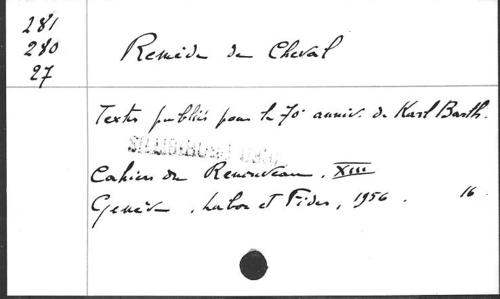 281
280
27
Remède de Cheval
Textes publiés pour le 70e anniv. de Karl Barth.
Cahiers du Renouveau, XIII
Genève, Labor et Fides, 1956. 16